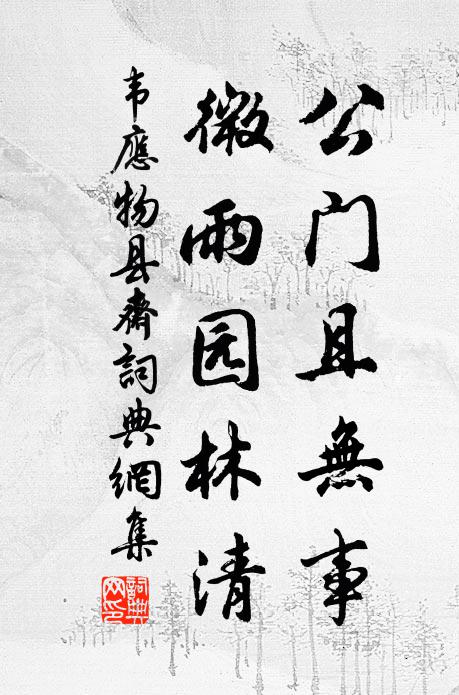 公门且無事
微雨园林清
韦應物县齋詞典網集
詞典